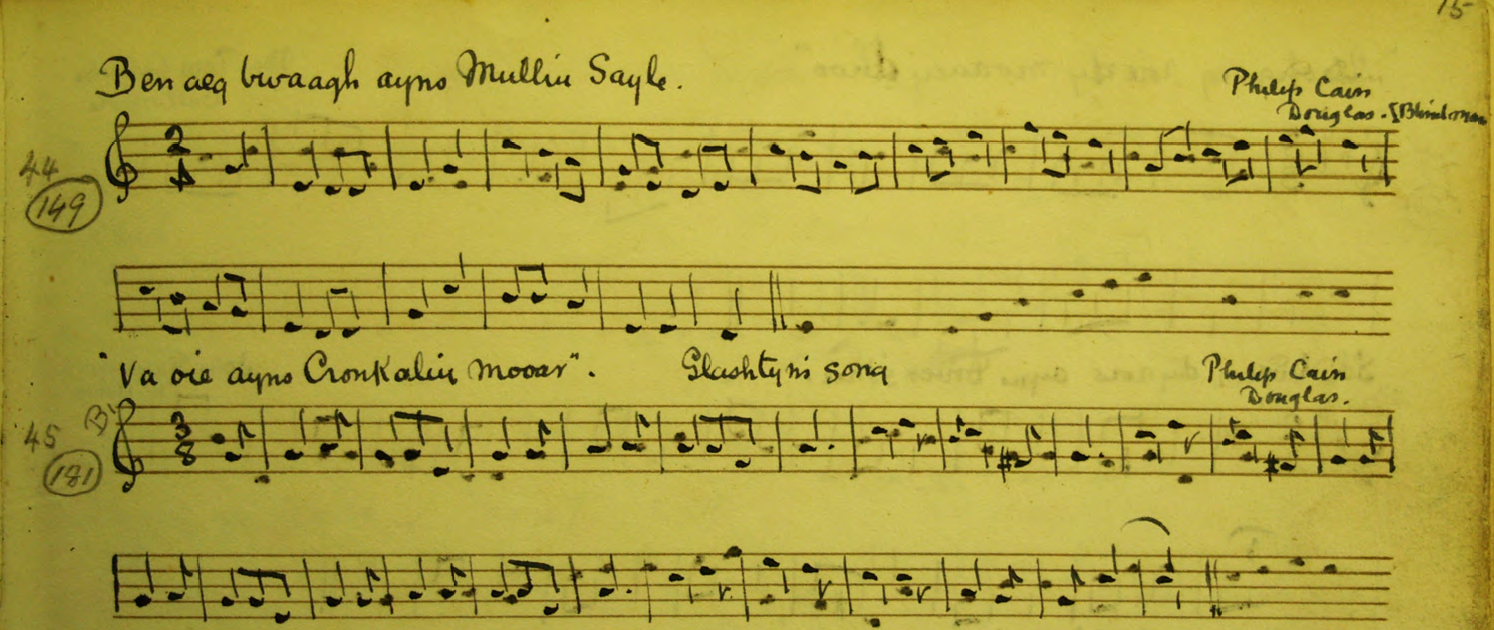 15
Ben aeg bwaagh ayns Mullin Sayle.
Philip Cain
Douglas. [Blind man
44
149
2
4
"Va oie ayns Cronkaliu mooar". Glashtyn's song
Philip Cain
Douglas.
45
181
3
8